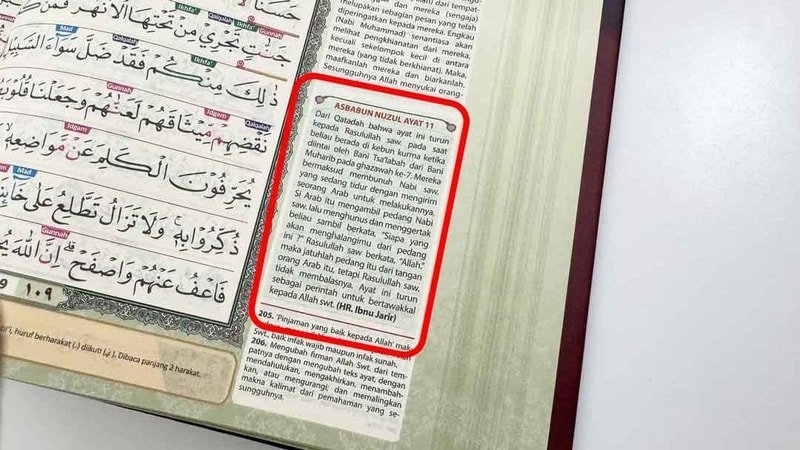 جَنّٰتٍ تَجْرِيْ مِنْ تَحْتِهَا الْاَنْهٰرُ فَمَنْ
ذٰلِكَ مِنْكُمْ فَقَدْ ضَلَّ سَوَاۤءَ السَّبِيْلِ
نَقْضِهِمْ مِّيْثَاقَهُمْ لَعَنّٰهُمْ وَجَعَلْنَا قُلُوْبَهُمْ
يُحَرِّفُوْنَ الْكَلِمَ عَنْ مَّوَاضِعِهٖ
ذُكِّرُوْا بِهٖۚ وَلَا تَزَالُ تَطَّلِعُ عَلٰى
فَاعْفُ عَنْهُمْ وَاصْفَحْ ۗ اِنَّ اللّٰهَ
١٠٩
huruf berharakat (.) diikuti (.), Dibaca panjang 2 harakat.
melupakan sebagian pesan yang telah
diperingatkan kepada mereka. Engkau
(Nabi Muhammad) senantiasa akan
melihat pengkhianatan dari mereka,
kecuali sekelompok kecil di antara
mereka (yang tidak berkhianat). Maka,
maafkanlah mereka dan biarkanlah.
Sesungguhnya Allah menyukai orang-
ASBABUN NUZUL AYAT 11
Dari Qatadah bahwa ayat ini turun
kepada Rasulullah saw. pada saat
beliau berada di kebun kurma ketika
diintai oleh Bani Tsa'labah dari Bani
Muharib pada ghazawah ke-7. Mereka
bermaksud membunuh Nabi saw.
yang sedang tidur dengan mengirim
seorang Arab untuk melakukannya.
Si Arab itu mengambil pedang Nabi
saw. lalu menghunus dan menggertak
beliau sambil berkata, "Siapa yang
akan menghalangimu dari pedang
ini ?" Rasulullah saw berkata, "Allah."
maka jatuhlah pedang itu dari tangan
orang Arab itu, tetapi Rasulullah saw.
tidak membalasnya. Ayat ini turun
sebagai perintah untuk bertawakkal
kepada Allah swt. (HR. Ibnu Jarir)
205. 'Pinjaman yang baik kepada Allah'
Swt., baik infak wajib maupun infak sunah.
206. Mengubah firman Allah Swt. dari tem-
patnya dengan mengubah teks ayat, dengan
mendahulukan, mengakhirkan, menambah-
kan, atau mengurangi; dan memalingkan
makna kalimat dari pemahaman yang se-
sungguhnya.